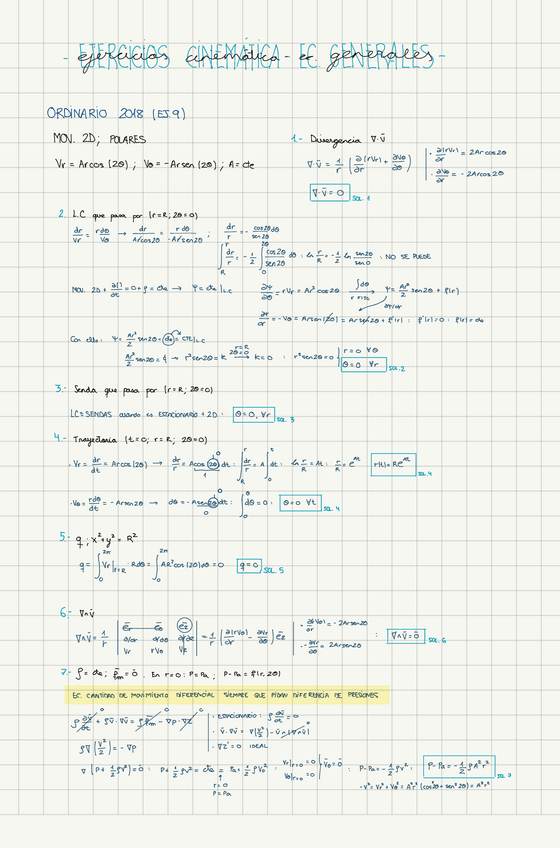 - EJERCICIOS CINEMÁTICA - EC. GENERALES -
ORDINARIO 2018 (EJ.9)
MOV. 2D; POLARES
Vr = Arcos(2θ); Vθ = -Arsen(2θ); A = cte
1.- Divergencia ∇·v̄
∇·v̄ = 1/r (∂(rVr)/∂r + ∂Vθ/∂θ)
· ∂(rVr)/∂r = 2Arcos2θ
· ∂Vθ/∂θ = -2Arcos2θ
∇·v̄ = 0 SOL. 1
2. L.C que pasa por (r=R; 2θ=0)
dr/Vr = rdθ/Vθ → dr/Arcos2θ = rdθ/-Arsen2θ ; dr/r = - cos2θdθ/sen2θ
∫ dr/r = -1/2 ∫ cos2θ/sen2θ dθ : ln r/R = -1/2 ln sen2θ/sen0 : NO SE PUEDE
MOV. 2D + ∂()/∂t = 0 + ρ = cte → Ψ = cte|L.C
∂Ψ/∂θ = rVr = Ar² cos2θ → Ψ = Ar²/2 sen2θ + f(r)
∂Ψ/∂r = -Vθ = Arsen(2θ) = Arsen2θ + f'(r) : f'(r)=0 : f(r) = cte
Con ello: Ψ = Ar²/2 sen2θ + cte = CTE|L.C
→ r²sen2θ = K → K = 0 : r²sen2θ = 0
r=0 ∀θ
θ=0 ∀r SOL. 2
3.- Senda que pasa por (r=R; 2θ=0)
LC = SENDAS cuando es ESTACIONARIO + 2D : θ=0, ∀r SOL. 3
4.- Trayectoria (t=0; r=R; 2θ=0)
·Vr = dr/dt = Arcos(2θ) → dr/r = Acos(2θ)dt : ∫ dr/r = A ∫ dt : ln r/R = At : r/R = e^At r(t) = Re^At SOL. 4
·Vθ = rdθ/dt = -Arsen2θ → dθ = -Asen2θdt : ∫dθ = 0 : θ=0 ∀t SOL. 4
5.- q ; x²+y² = R²
q = ∫ Vr|r=R · Rdθ = ∫ AR²cos(2θ)dθ = 0 q = 0 SOL. 5
6.- ∇∧v̄
∇∧v̄ = 1/r | ēr ēθ ēz | ∂/∂r ∂/∂θ ∂/∂z | Vr rVθ Vz | = 1/r (∂(rVθ)/∂r - ∂Vr/∂θ) ēz
· ∂(rVθ)/∂r = -2Arsen2θ
· -∂Vr/∂θ = 2Arsen2θ
: ∇∧v̄ = 0̄ SOL. 6
7.- ρ = cte; f̄m = 0̄. En r=0: P=Pa; P-Pa = f(r,2θ)
EC. CANTIDAD DE MOVIMIENTO DIFERENCIAL SIEMPRE QUE PIDAN DIFERENCIA DE PRESIONES
ρ ∂v̄/∂t + ρv̄·∇v̄ = ρf̄m - ∇P - ∇·τ̄
· ESTACIONARIO: ρ ∂v̄/∂t = 0
· v̄·∇v̄ = ∇(v²/2) - v̄∧(∇∧v̄)
· ∇τ̄ = 0 IDEAL
ρ∇(v²/2) = -∇P
∇(P + 1/2 ρv²) = 0̄ : P + 1/2 ρv² = cte = Pa + 1/2 ρV0² :
r=0
P=Pa
Vr|r=0 = 0
Vθ|r=0 = 0
V̄0 = 0̄ : P-Pa = -1/2 ρv² : P-Pa = -1/2 ρA²r² SOL. 7
·V² = Vr²+Vθ² = A²r²(cos²2θ + sen²2θ) = A²r²